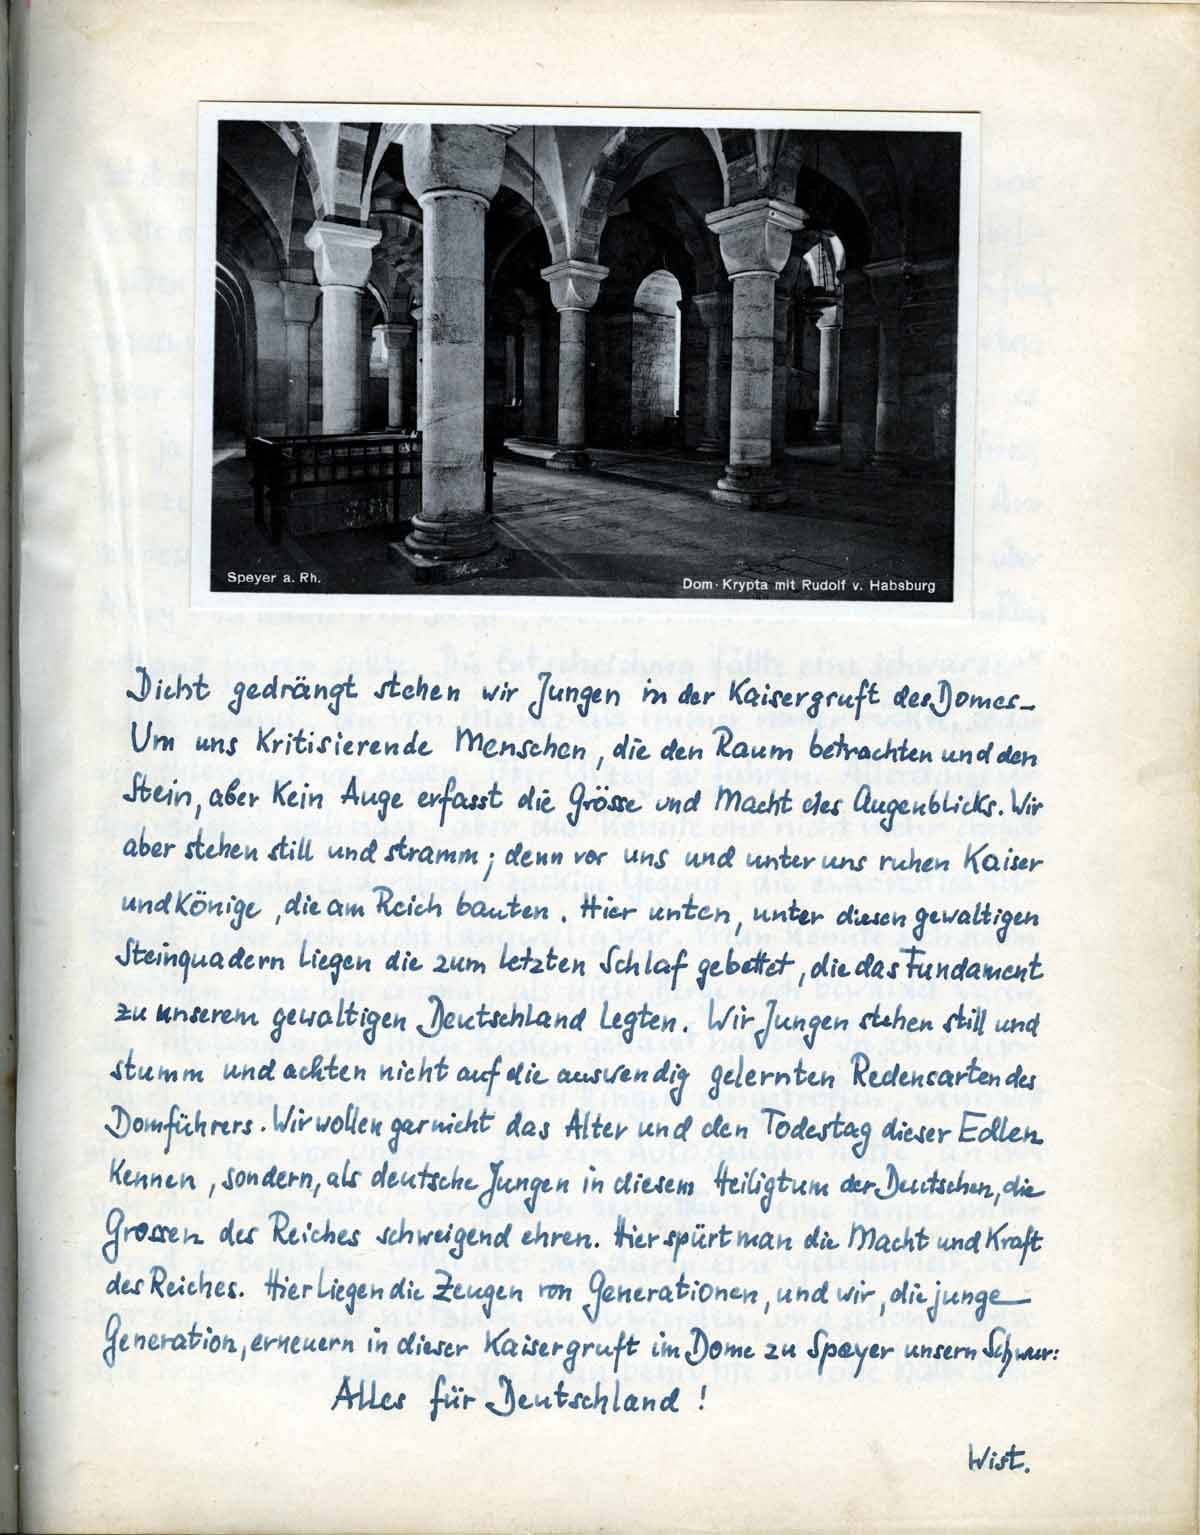 Speyer a. Rh.
Dom-Krypta mit Rudolf v. Habsburg
Dicht gedrängt stehen wir Jungen in der Kaisergruft des Domes –
Um uns kritisierende Menschen, die den Raum betrachten und den
Stein, aber kein Auge erfasst die Grösse und Macht des Augenblicks. Wir
aber stehen still und stramm; denn vor uns und unter uns ruhen Kaiser
und Könige, die am Reich bauten. Hier unten, unter diesen gewaltigen
Steinquadern liegen die zum letzten Schlaf gebettet, die das Fundament
zu unserem gewaltigen Deutschland legten. Wir Jungen stehen still und
stumm und achten nicht auf die auswendig gelernten Redensarten des
Domführers. Wir wollen gar nicht das Alter und den Todestag dieser Edlen
kennen, sondern, als deutsche Jungen in diesem Heiligtum der Deutschen, die
Grossen des Reiches schweigend ehren. Hier spürt man die Macht und Kraft
des Reiches. Hier liegen die Zeugen von Generationen, und wir, die junge
Generation, erneuern in dieser Kaisergruft im Dome zu Speyer unsern Schwur:
Alles für Deutschland!
Wist.